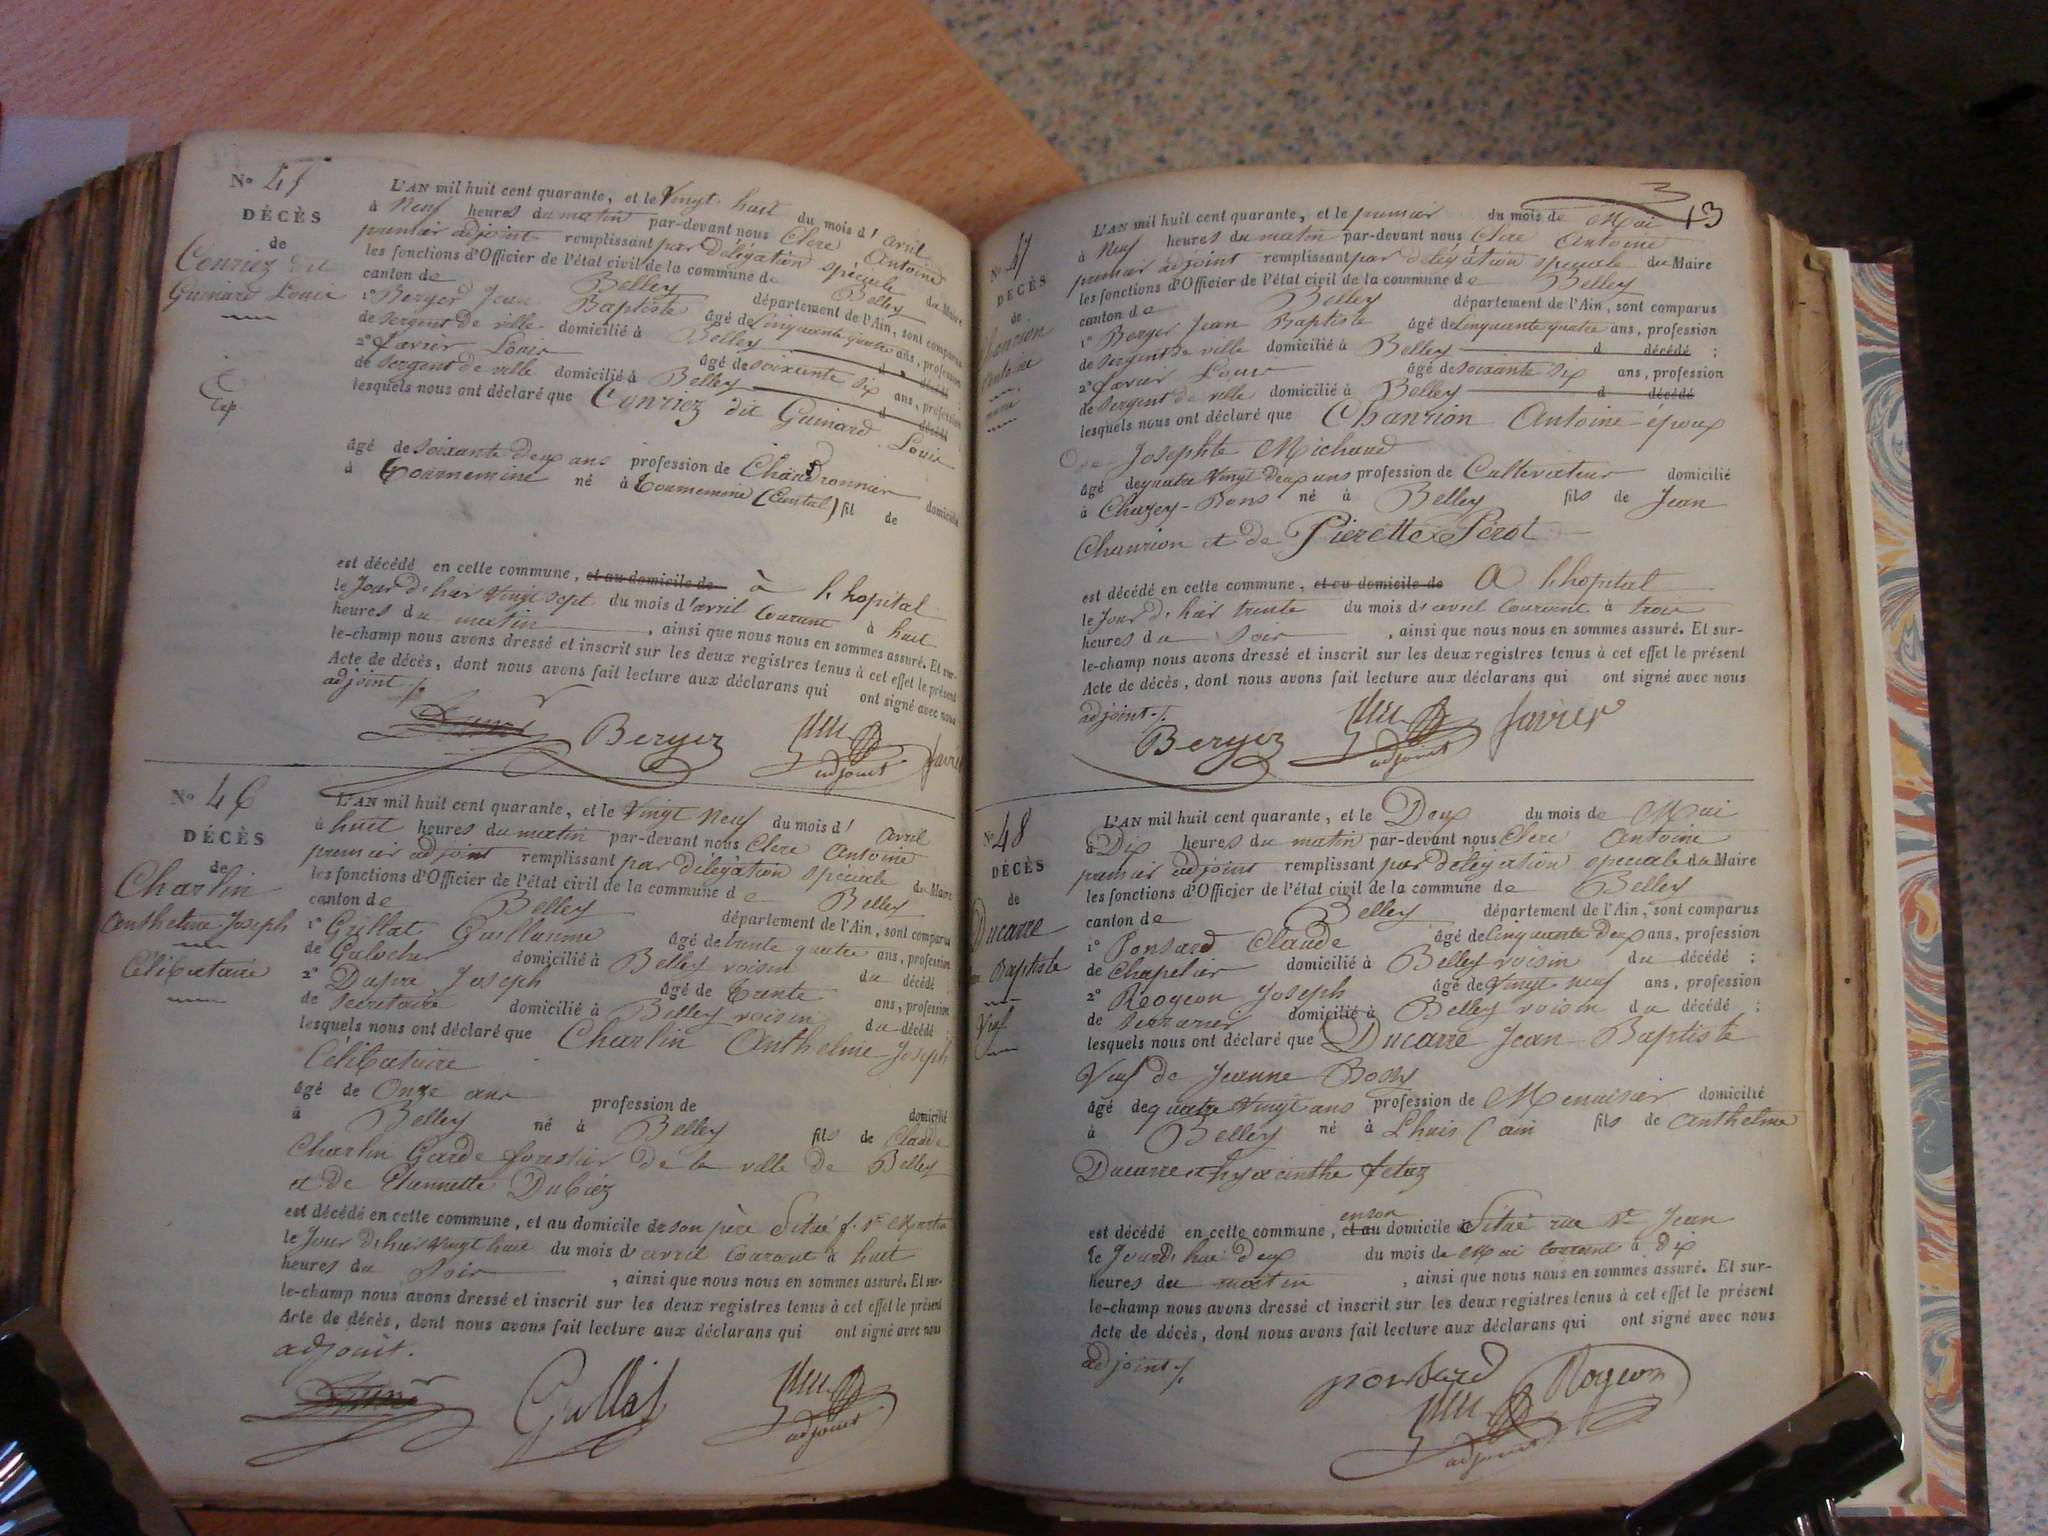 N° 45
DÉCÈS
de
Conriez dit
Guinard Louis
Exp.
L'AN mil huit cent quarante, et le Vingt huit du mois d' avril
à Neuf heures du matin par-devant nous Clerc Antoine
premier adjoint remplissant par délégation spéciale du Maire
les fonctions d'Officier de l'état civil de la commune de Belley
canton de Belley département de l'Ain, sont comparus
1° Berger Jean Baptiste âgé de Cinquante quatre ans, profession
de Sergent de ville domicilié à Belley d décédé
2° Favrier Louis âgé de soixante six ans, profession
de Sergent de ville domicilié à Belley d décédé
lesquels nous ont déclaré que Conriez dit Guinard Louis
âgé de soixante deux ans profession de Chaudronnier domicilié
à Tournemine né à Tournemine (Cantal) fil de
est décédé en cette commune, et au domicile de à l'hopital
le Jour d'hier vingt sept du mois d'avril Courant à huit
heures du matin , ainsi que nous nous en sommes assuré. Et sur-
le-champ nous avons dressé et inscrit sur les deux registres tenus à cet effet le présent
Acte de décès, dont nous avons fait lecture aux déclarans qui ont signé avec nous
adjoint./.
Berger adjoint
N° 46
DÉCÈS
de
Charlin
Anthelme Joseph
Célibataire
L'AN mil huit cent quarante, et le Vingt Neuf du mois d' avril
à huit heures du matin par-devant nous Clerc Antoine
premier adjoint remplissant par délégation spéciale du Maire
les fonctions d'Officier de l'état civil de la commune de Belley
canton de Belley département de l'Ain, sont comparus
1° Grillat Guillaume âgé de trente quatre ans, profession
de Galocher domicilié à Belley voisin du décédé
2° Dupra Joseph âgé de Trente ans, profession
de Secretaire domicilié à Belley voisin du décédé ;
lesquels nous ont déclaré que Charlin Anthelme Joseph
Célibataire
âgé de Onze ans profession de domicilié
à Belley né à Belley fils de Claude
Charlin Garde forestier de la ville de Belley
et de Dubiez
est décédé en cette commune, et au domicile de son père Situé f. St Martin
le Jour d'hier vingt huit du mois d'avril Courant à huit
heures du Soir , ainsi que nous nous en sommes assuré. Et sur-
le-champ nous avons dressé et inscrit sur les deux registres tenus à cet effet le présent
Acte de décès, dont nous avons fait lecture aux déclarans qui ont signé avec nous
adjoint.
Grillat adjoint
13
N° 47
DÉCÈS
de
Chanrion
Antoine
L'AN mil huit cent quarante, et le premier du mois de Mai
à Neuf heures du matin par-devant nous Clerc Antoine
premier adjoint remplissant par délégation spéciale du Maire
les fonctions d'Officier de l'état civil de la commune de Belley
canton de Belley département de l'Ain, sont comparus
1° Berger Jean Baptiste âgé de Cinquante quatre ans, profession
de Sergent de ville domicilié à Belley d décédé ;
2° Favrier Louis âgé de soixante six ans, profession
de Sergent de ville domicilié à Belley d décédé
lesquels nous ont déclaré que Chanrion Antoine époux
de Josephte Michaud
âgé de quatre Vingt deux ans profession de Cultivateur domicilié
à Chazey-Bons né à Belley fils de Jean
Chanrion et de Pierette Pérot
est décédé en cette commune, et au domicile de A l'hopital
le Jour d'hier trente du mois d'avril Courant à trois
heures du Soir , ainsi que nous nous en sommes assuré. Et sur-
le-champ nous avons dressé et inscrit sur les deux registres tenus à cet effet le présent
Acte de décès, dont nous avons fait lecture aux déclarans qui ont signé avec nous
adjoint./.
Berger adjoint favrier
N° 48
DÉCÈS
de
Ducarre
Baptiste
Veuf
L'AN mil huit cent quarante, et le Deux du mois de Mai
à Dix heures du matin par-devant nous Clerc Antoine
premier adjoint remplissant par délégation spéciale du Maire
les fonctions d'Officier de l'état civil de la commune de Belley
canton de Belley département de l'Ain, sont comparus
1° Ponsard Claude âgé de Cinquante deux ans, profession
de Chapelier domicilié à Belley voisin du décédé ;
2° Rogeon Joseph âgé de Vingt neuf ans, profession
de Serrurier domicilié à Belley voisin du décédé ;
lesquels nous ont déclaré que Ducarre Jean Baptiste
Veuf de Jeanne Bossy
âgé de quatre Vingt ans profession de Menuisier domicilié
à Belley né à Lhuis (ain fils de Anthelme
Ducarre et hyacinthe fetaz
est décédé en cette commune, et au en son domicile de Situé rue St Jean
le Jourd'hui deux du mois de Mai courant à dix
heures du matin , ainsi que nous nous en sommes assuré. Et sur-
le-champ nous avons dressé et inscrit sur les deux registres tenus à cet effet le présent
Acte de décès, dont nous avons fait lecture aux déclarans qui ont signé avec nous
adjoint./.
ponsard Rogeon
adjoint